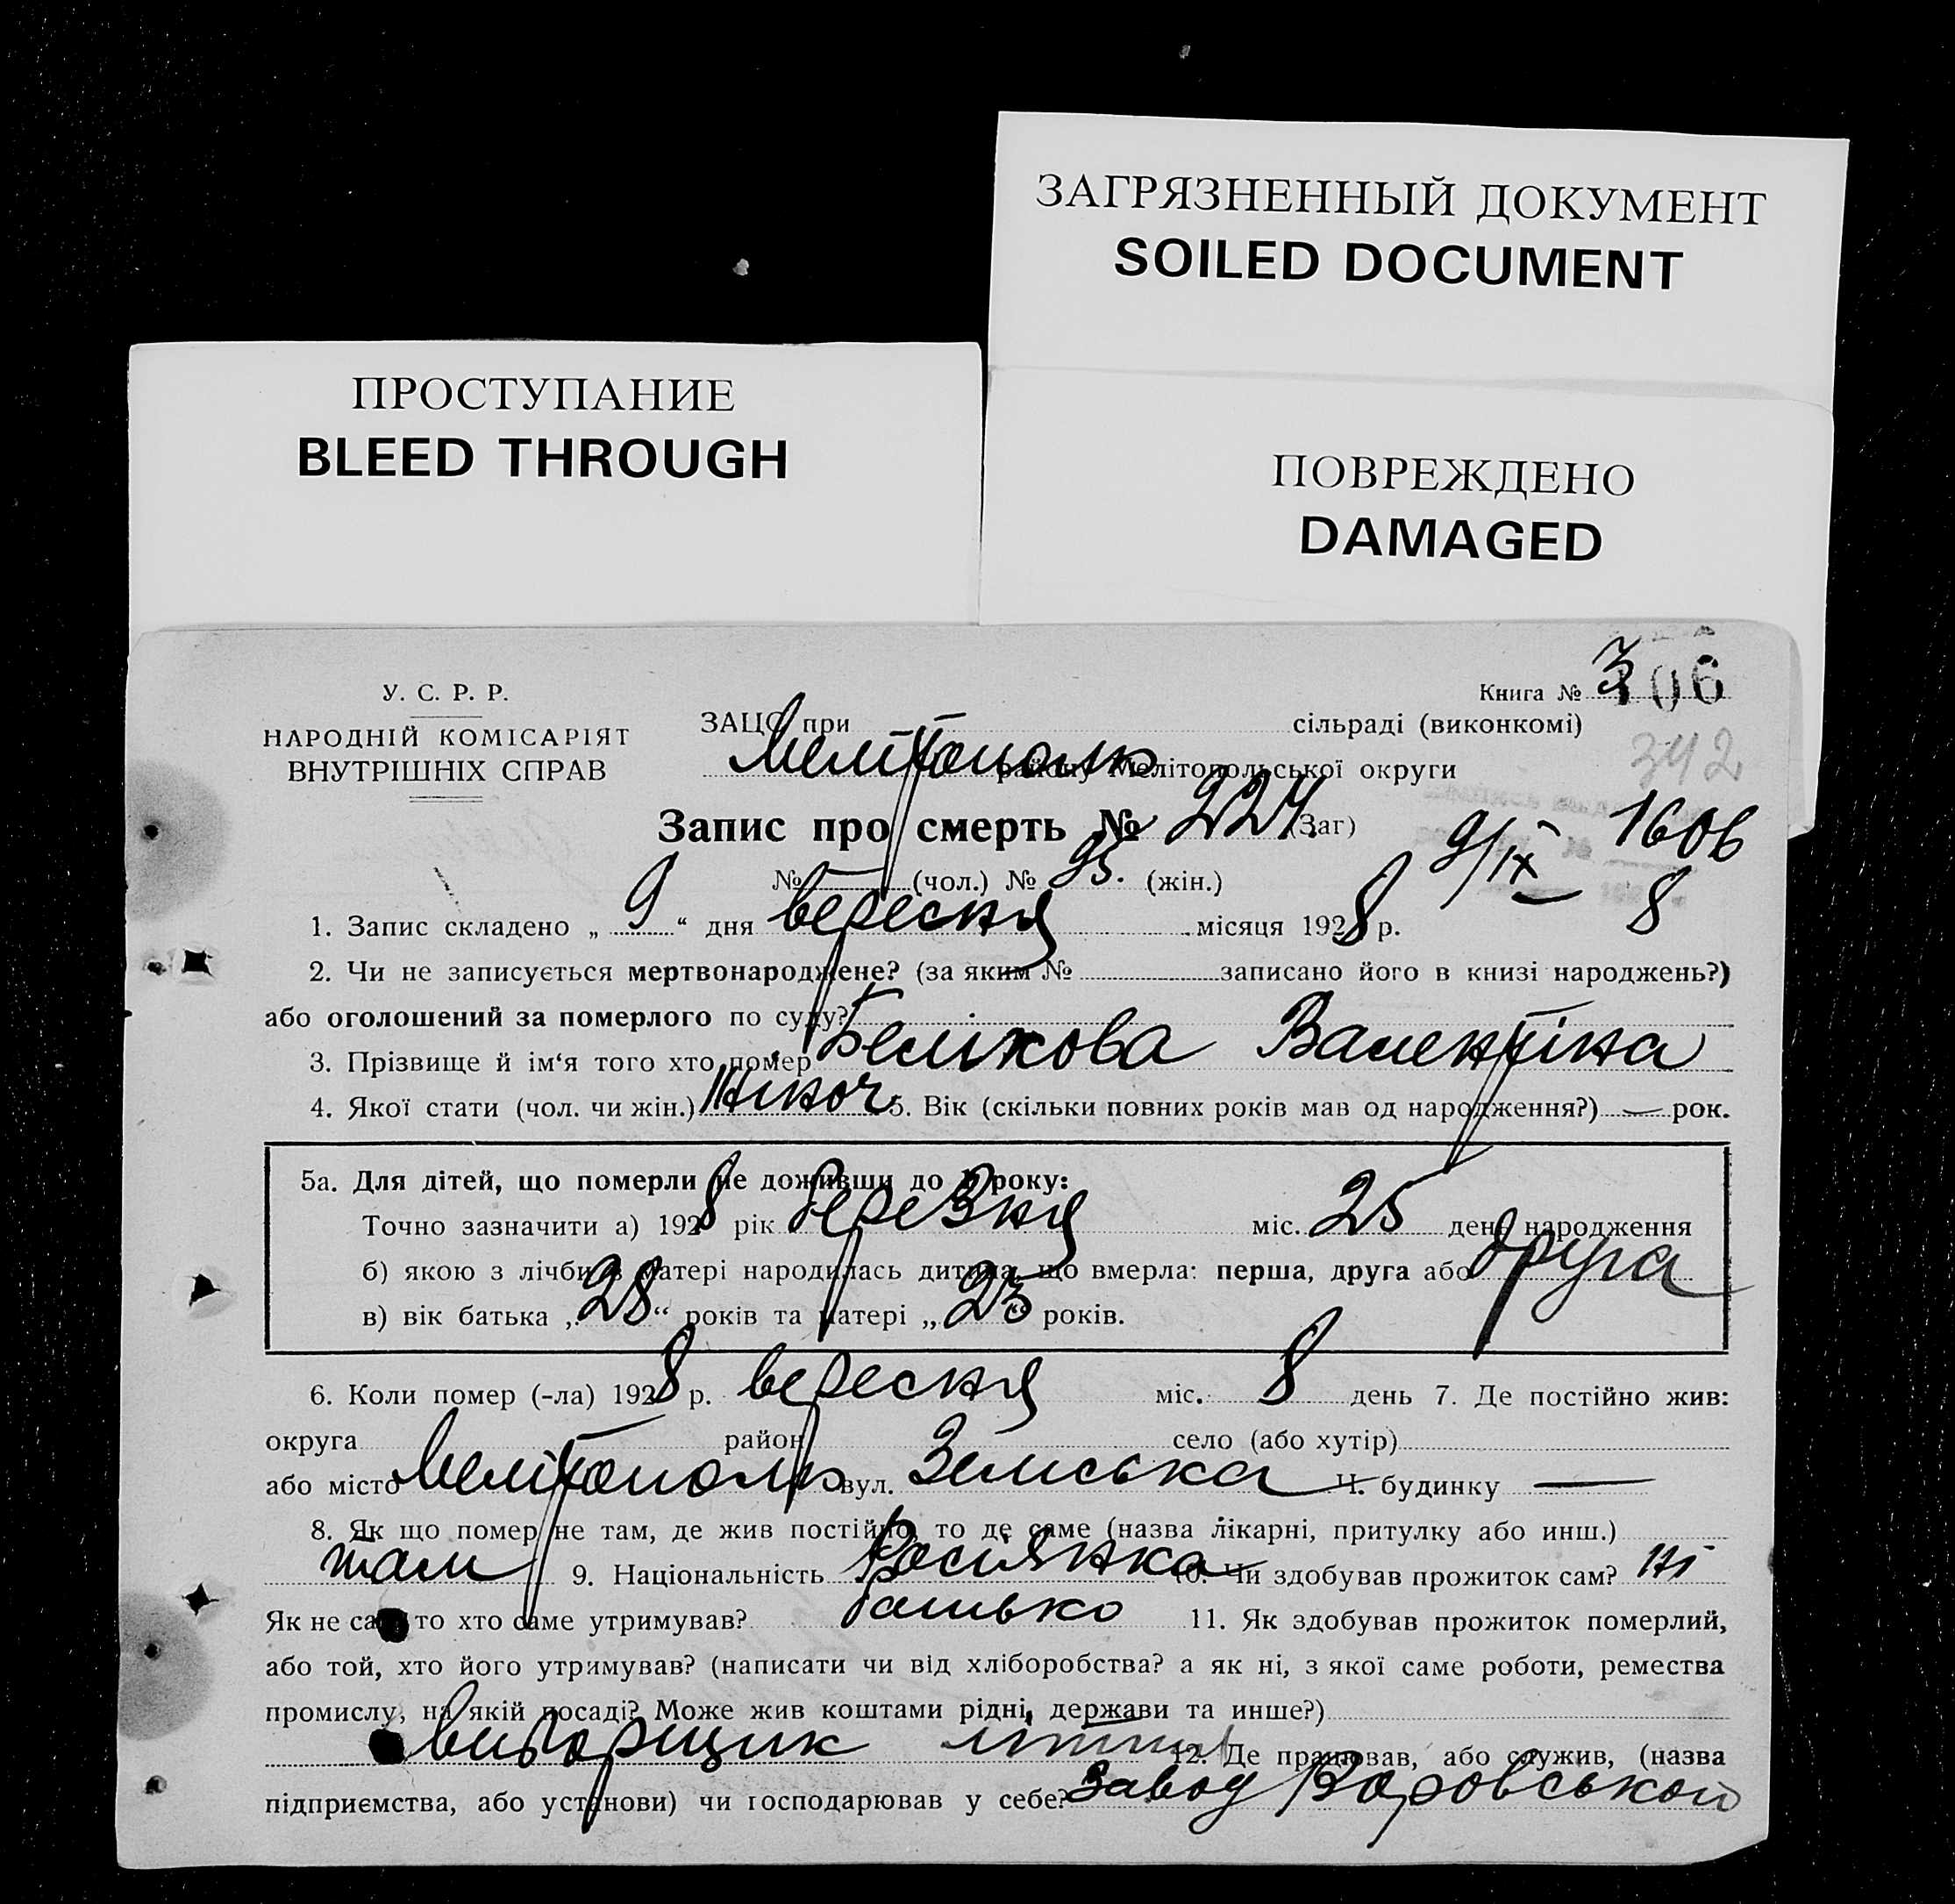 ЗАГРЯЗНЕННЫЙ ДОКУМЕНТ
SOILED DOCUMENT
ПРОСТУПАНИЕ
BLEED THROUGH
ПОВРЕЖДЕНО
DAMAGED
У. С. Р. Р.
НАРОДНІЙ КОМІСАРІЯТ
ВНУТРІШНІХ СПРАВ
Книга № 306
342
ЗАЦС при сільраді (виконкомі)
Мелітополь району Мелітопольської округи
Запис про смерть № 224. (Заг)
9/IX 1606
8
№ — (чол.) № 95. (жін.)
1. Запис складено „ 9 “ дня вересня місяця 1928 р.
2. Чи не записується мертвонароджене? (за яким № записано його в книзі народжень?)
або оголошений за померлого по суду?
3. Прізвище й ім‘я того хто помер Белікова Валентіна
4. Якої стати (чол. чи жін.) жіноч. 5. Вік (скільки повних років мав од народження?) — рок.
5а. Для дітей, що померли не доживши до 1 року:
Точно зазначити а) 1928 рік березня міс. 25 день народження
б) якою з лічби в матері народилась дитина, що вмерла: перша, друга або друга
в) вік батька „ 28 “ років та матері „ 25 “ років.
6. Коли помер (-ла) 1928 р. вересня міс. 8 день 7. Де постійно жив:
округа район село (або хутір)
або місто Мелітополь вул. Земська Ч. будинку —
8. Як що помер не там, де жив постійно, то де саме (назва лікарні, притулку або инш.)
там 9. Національність Росіянка 10. Чи здобував прожиток сам? ні
Як не сам то хто саме утримував? батько 11. Як здобував прожиток померлий,
або той, хто його утримував? (написати чи від хліборобства? а як ні, з якої саме роботи, ремества
промислу, на якій посаді? Може жив коштами рідні, держави та инше?)
виборщик 12. Де працював, або служив, (назва
підприємства, або установи) чи господарював у себе? Завод Воровського